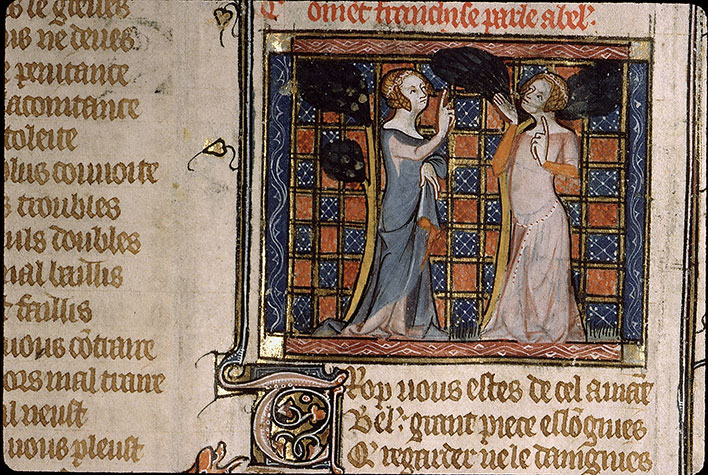 is le gieues
us ne deues
e penitance
acointance
toleite
plus couuoite
s troubles
uls doubles
mal baillis
t faillis
uous cōtraire
ors mal traire
al neust
uous pleust
Cōmēt franchise parle a bel.
Trop uous estes de cel amāt
Bel. grant piece eslōgnies
Q regarder ne le daingnies